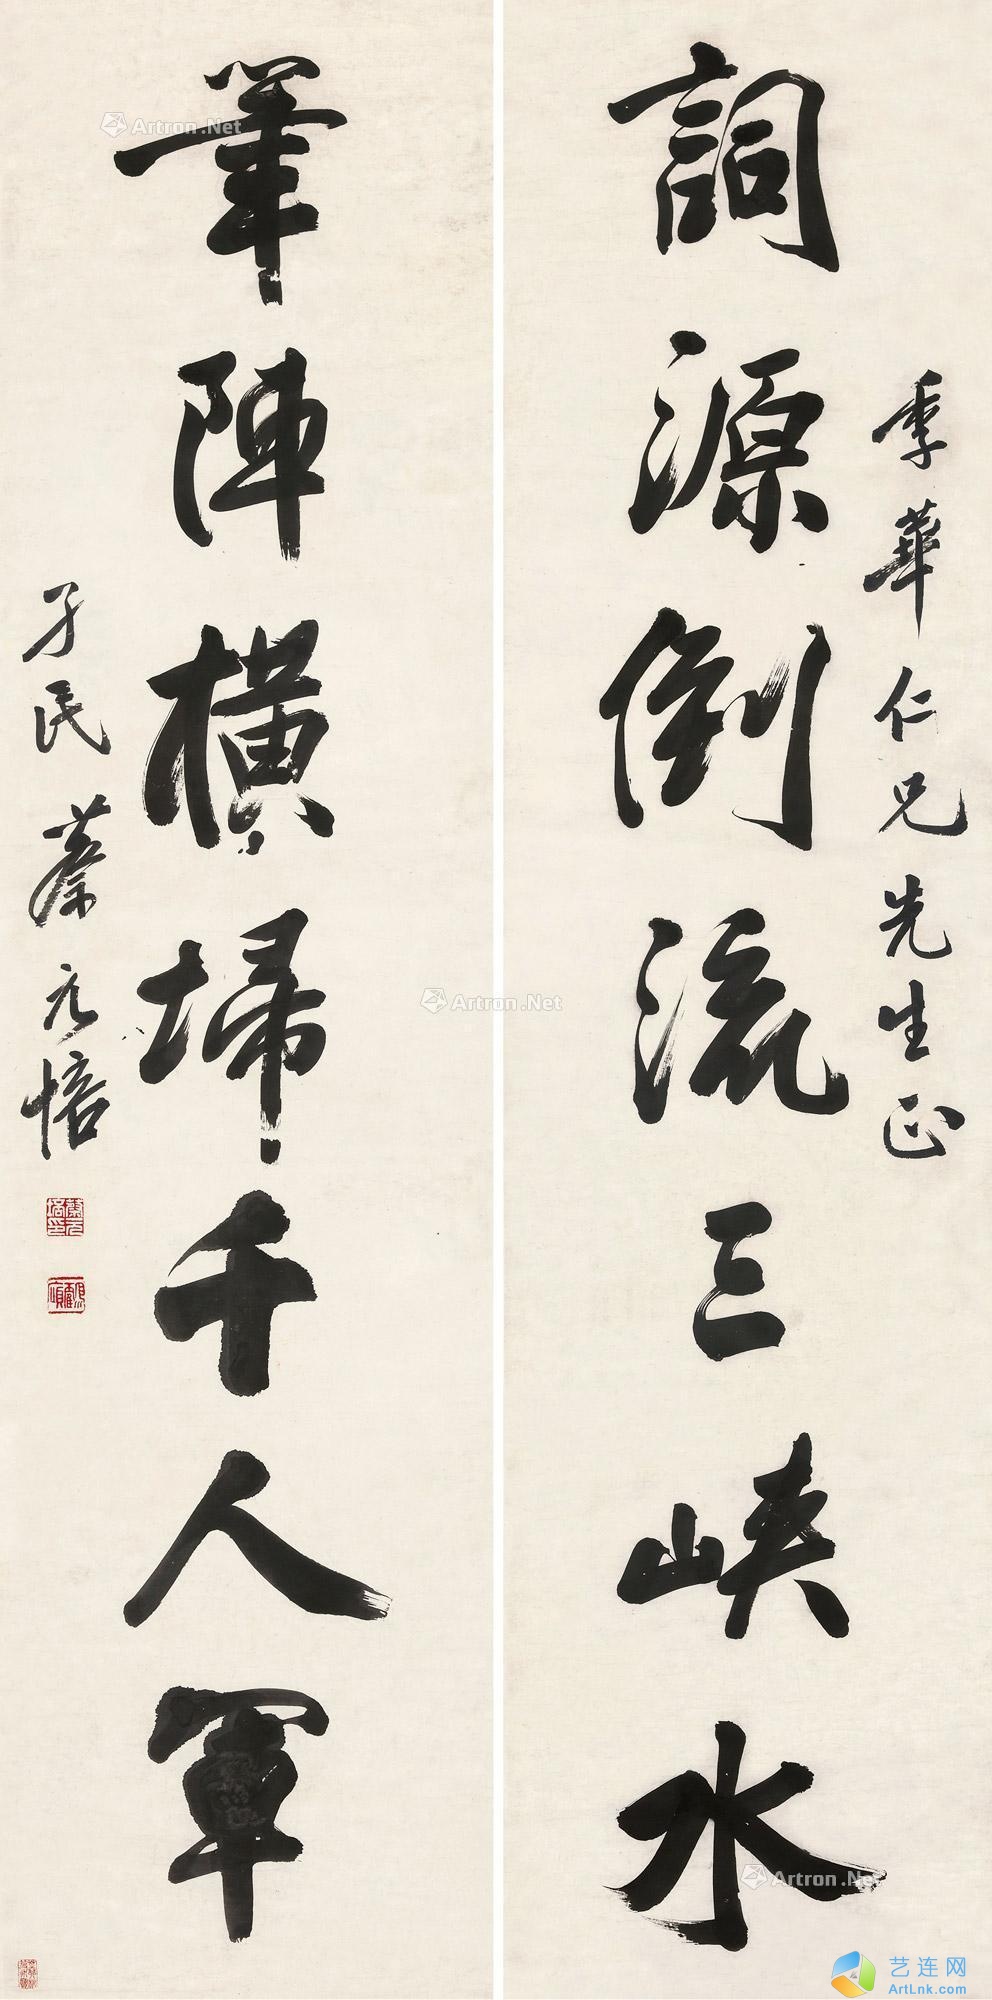 季華仁兄先生正
詞源倒流三峽水
筆陣橫埽千人軍
孑民蔡元培
蔡元培印
Artron.Net
Artron.Net
Artron.Net
艺连网
ArtLnk.com